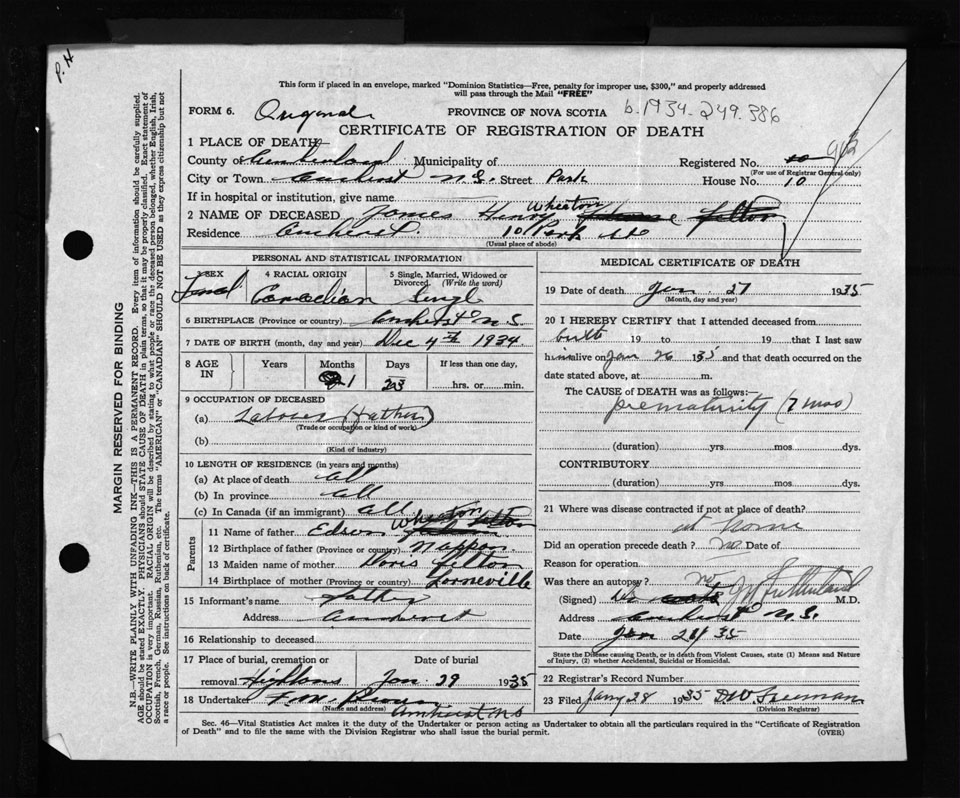 P. H
This form if placed in an envelope, marked "Dominion Statistics—Free, penalty for improper use, $300," and properly addressed
will pass through the Mail "FREE"
FORM 6. Original PROVINCE OF NOVA SCOTIA b. 1934. 249. 386
CERTIFICATE OF REGISTRATION OF DEATH
1 PLACE OF DEATH
County of Cumberland Municipality of Registered No.
(For use of Registrar General only)
City or Town Amherst N.S. Street Park House No. 10
If in hospital or institution, give name
2 NAME OF DECEASED James Henry Wheaton Felton
Residence Amherst. 10 Park St
(Usual place of abode)
PERSONAL AND STATISTICAL INFORMATION
3 SEX 4 RACIAL ORIGIN 5 Single, Married, Widowed or
Divorced. (Write the word)
Canadian Single
6 BIRTHPLACE (Province or country) Amherst N S.
7 DATE OF BIRTH (month, day and year) Dec 4th 1934
8 AGE IN Years Months Days If less than one day,
1 23 hrs. or min.
9 OCCUPATION OF DECEASED
(a) Laborer (father)
(Trade or occupation or kind of work)
(b)
(Kind of industry)
10 LENGTH OF RESIDENCE (in years and months)
(a) At place of death all
(b) In province all
(c) In Canada (if an immigrant) all
Parents
11 Name of father Edson Wheaton Felton
12 Birthplace of father (Province or country) Nappan
13 Maiden name of mother Doris Felton
14 Birthplace of mother (Province or country) Lorneville
15 Informant's name Father
Address Amherst
16 Relationship to deceased
17 Place of burial, cremation or Date of burial
removal Highland Jan. 29 1935
18 Undertaker F. M. Brown
(Name and address) Amherst N S
MEDICAL CERTIFICATE OF DEATH
19 Date of death Jan. 27 1935
(Month, day and year)
20 I HEREBY CERTIFY that I attended deceased from
birth 19 to 19 that I last saw
him alive on Jan 26 1935 and that death occurred on the
date stated above, at m.
The CAUSE of DEATH was as follows:—
prematurity (7 mos)
(duration) yrs. mos. dys.
CONTRIBUTORY
(duration) yrs. mos. dys.
21 Where was disease contracted if not at place of death?
at home
Did an operation precede death? no Date of
Reason for operation
Was there an autopsy? no
(Signed) Dr J W Sutherland M.D.
Address Amherst N.S.
Date Jan 28/35
State the Disease causing Death, or in death from Violent Causes, state (1) Means and Nature
of Injury, (2) whether Accidental, Suicidal or Homicidal.
22 Registrar's Record Number
23 Filed Jany 28 1935 D.W. Freeman
(Division Registrar)
Sec. 46—Vital Statistics Act makes it the duty of the Undertaker or person acting as Undertaker to obtain all the particulars required in the "Certificate of Registration
of Death" and to file the same with the Division Registrar who shall issue the burial permit. (OVER)
MARGIN RESERVED FOR BINDING
N.B.—WRITE PLAINLY WITH UNFADING INK—THIS IS A PERMANENT RECORD. Every item of information should be carefully supplied.
AGE should be stated EXACTLY. PHYSICIANS should STATE CAUSE OF DEATH in plain terms, so that it may be properly classified. Exact statement of
OCCUPATION is very important. RACIAL ORIGIN will be described by stating to what people or race the deceased person belonged, whether English, Irish,
Scottish, French, German, Russian, Ruthenian, etc. The terms "AMERICAN" or "CANADIAN" SHOULD NOT BE USED as they express citizenship but not
a race or people. See instructions on back of certificate.